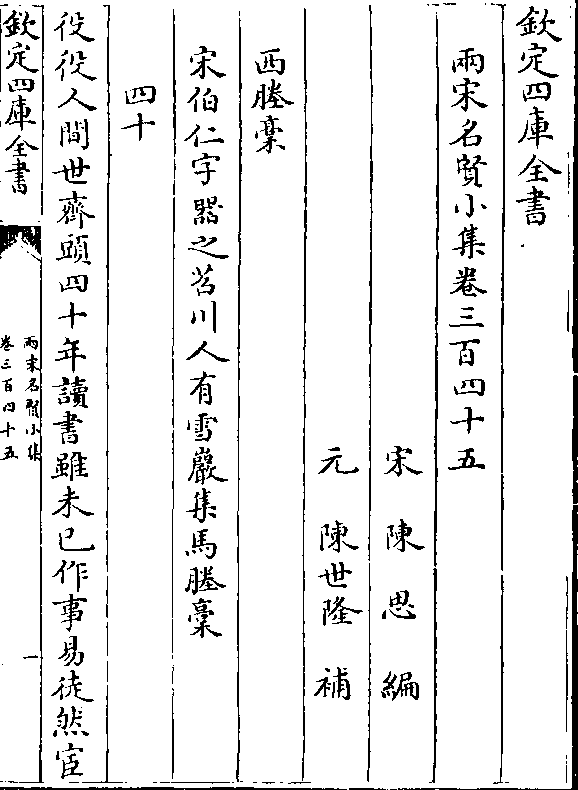 欽定四庫全書
兩宋名賢小集卷三百四十五
宋　陳　思　編
元　陳世隆　補
西塍稾
宋伯仁字器之苕川人有雪巖集馬塍稾
四十
役役人間世齊頭四十年讀書雖未已作事易徒然宦
欽定四庫全書
兩宋名賢小集
卷三百四十五
一